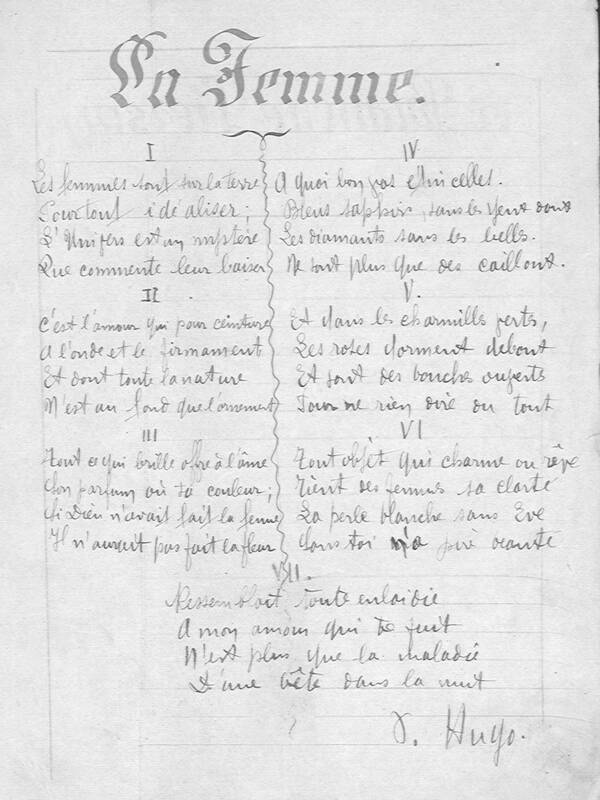 La Femme.
I
Les femmes sont sur la terre
Pour tout idéaliser;
L'Univers est un mystère
Que commente leur baiser
II
C'est l'amour qui pour ceinture
A l'onde et le firmament
Et dont toute la nature
N'est au fond que l'ornement
III
Tout ce qui brille offre à l'âme
Son parfum où sa couleur;
Si Dieu n'avait fait la femme
Il n'aurait pas fait la fleur
IV
A quoi bon vos étincelles.
Bleus saphirs, sans les yeux doux
Les diamants sans les belles.
Ne sont plus que des cailloux.
V.
Et dans les charmilles vertes,
Les roses dorment debout
Et sont des bouches ouvertes
Pour ne rien dire du tout
VI
Tout objet qui charme ou rêve
Tient des femmes sa clarté
La perle blanche sans Eve
Sans toi
VII.
Ressemblait, toute enlaidie
A mon amour qui te fuit
N'est plus que la maladie
D'une bête dans la nuit
V. Hugo.